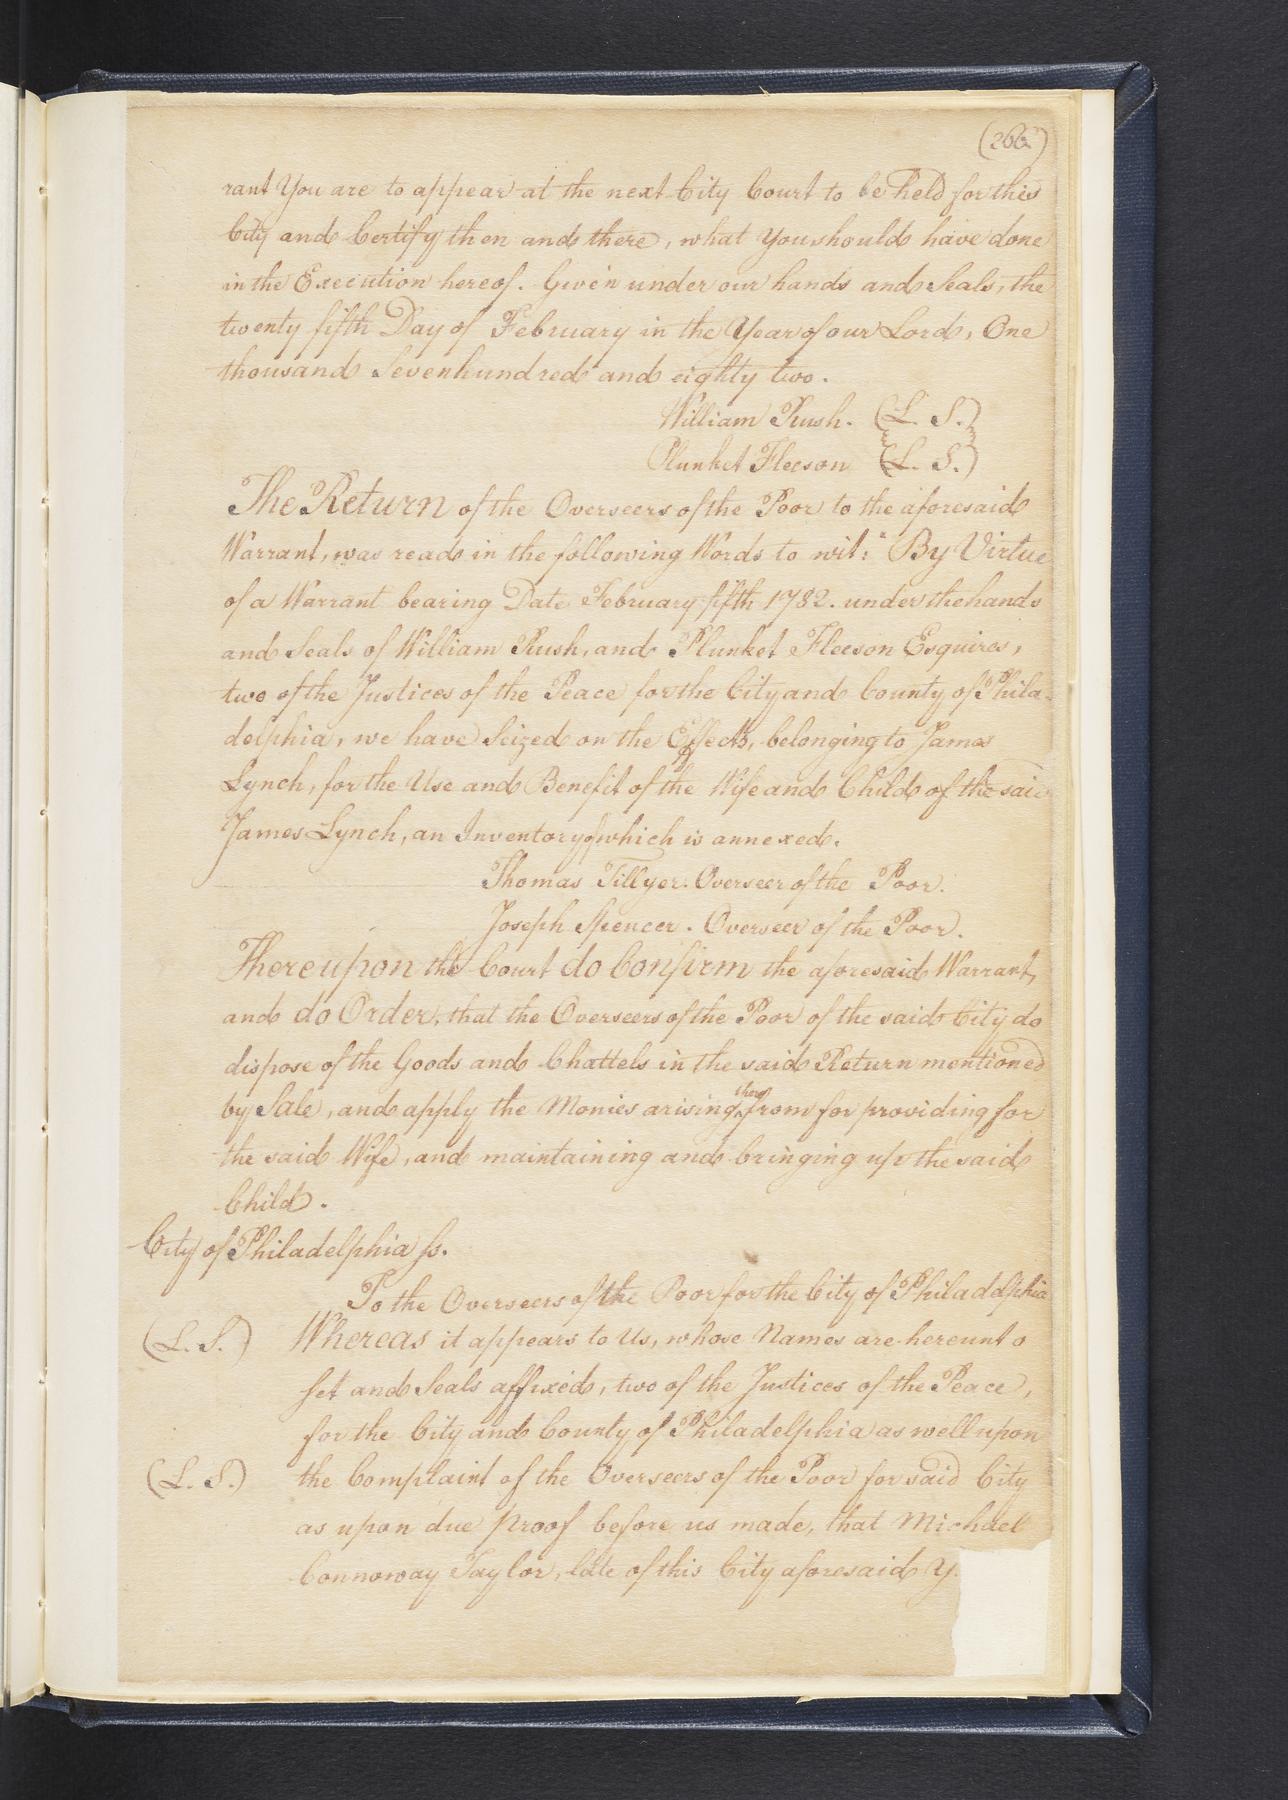 rant You are to appear at the next City Court to be held for this
City and Certify then and there, what You should have done
in the Execution hereof. Given under our hands and Seals, the
twenty fifth Day of February in the Year of our Lord, One
thousand Sevenhundred and eighty two.
William Rush. (L. S.)
Plunket Fleeson (L. S.)
The Return of the Overseers of the Poor to the aforesaid
Warrant, was read in the following Words to wit: "By Virtue
of a Warrant bearing Date February fifth 1782. under the hands
and Seals of William Rush, and Plunket Fleeson Esquires,
two of the Justices of the Peace for the City and County of Phila-
delphia, we have Seized on the Effects, belonging to James
Lynch, for the Use and Benefit of the Wife and Child of the said
James Lynch, an Inventory of which is annexed.
Thomas Tillyer. Overseer of the Poor.
Joseph Spencer. Overseer of the Poor.
Thereupon the Court do Confirm the aforesaid Warrant,
and do Order, that the Overseers of the Poor of the said City do
dispose of the Goods and Chattels in the said Return mentioned
by Sale, and apply the Monies arising therefrom for providing for
the said Wife, and maintaining and bringing up the said
Child.
City of Philadelphia ss.
To the Overseers of the Poor for the City of Philadelphia
(L. S.) Whereas it appears to Us, whose Names are hereunto
set and Seals affixed, two of the Justices of the Peace,
for the City and County of Philadelphia as well upon
(L. S.) the Complaint of the Overseers of the Poor for said City
as upon due Proof before us made, that Michael
Connoway Taylor, late of this City aforesaid Y.